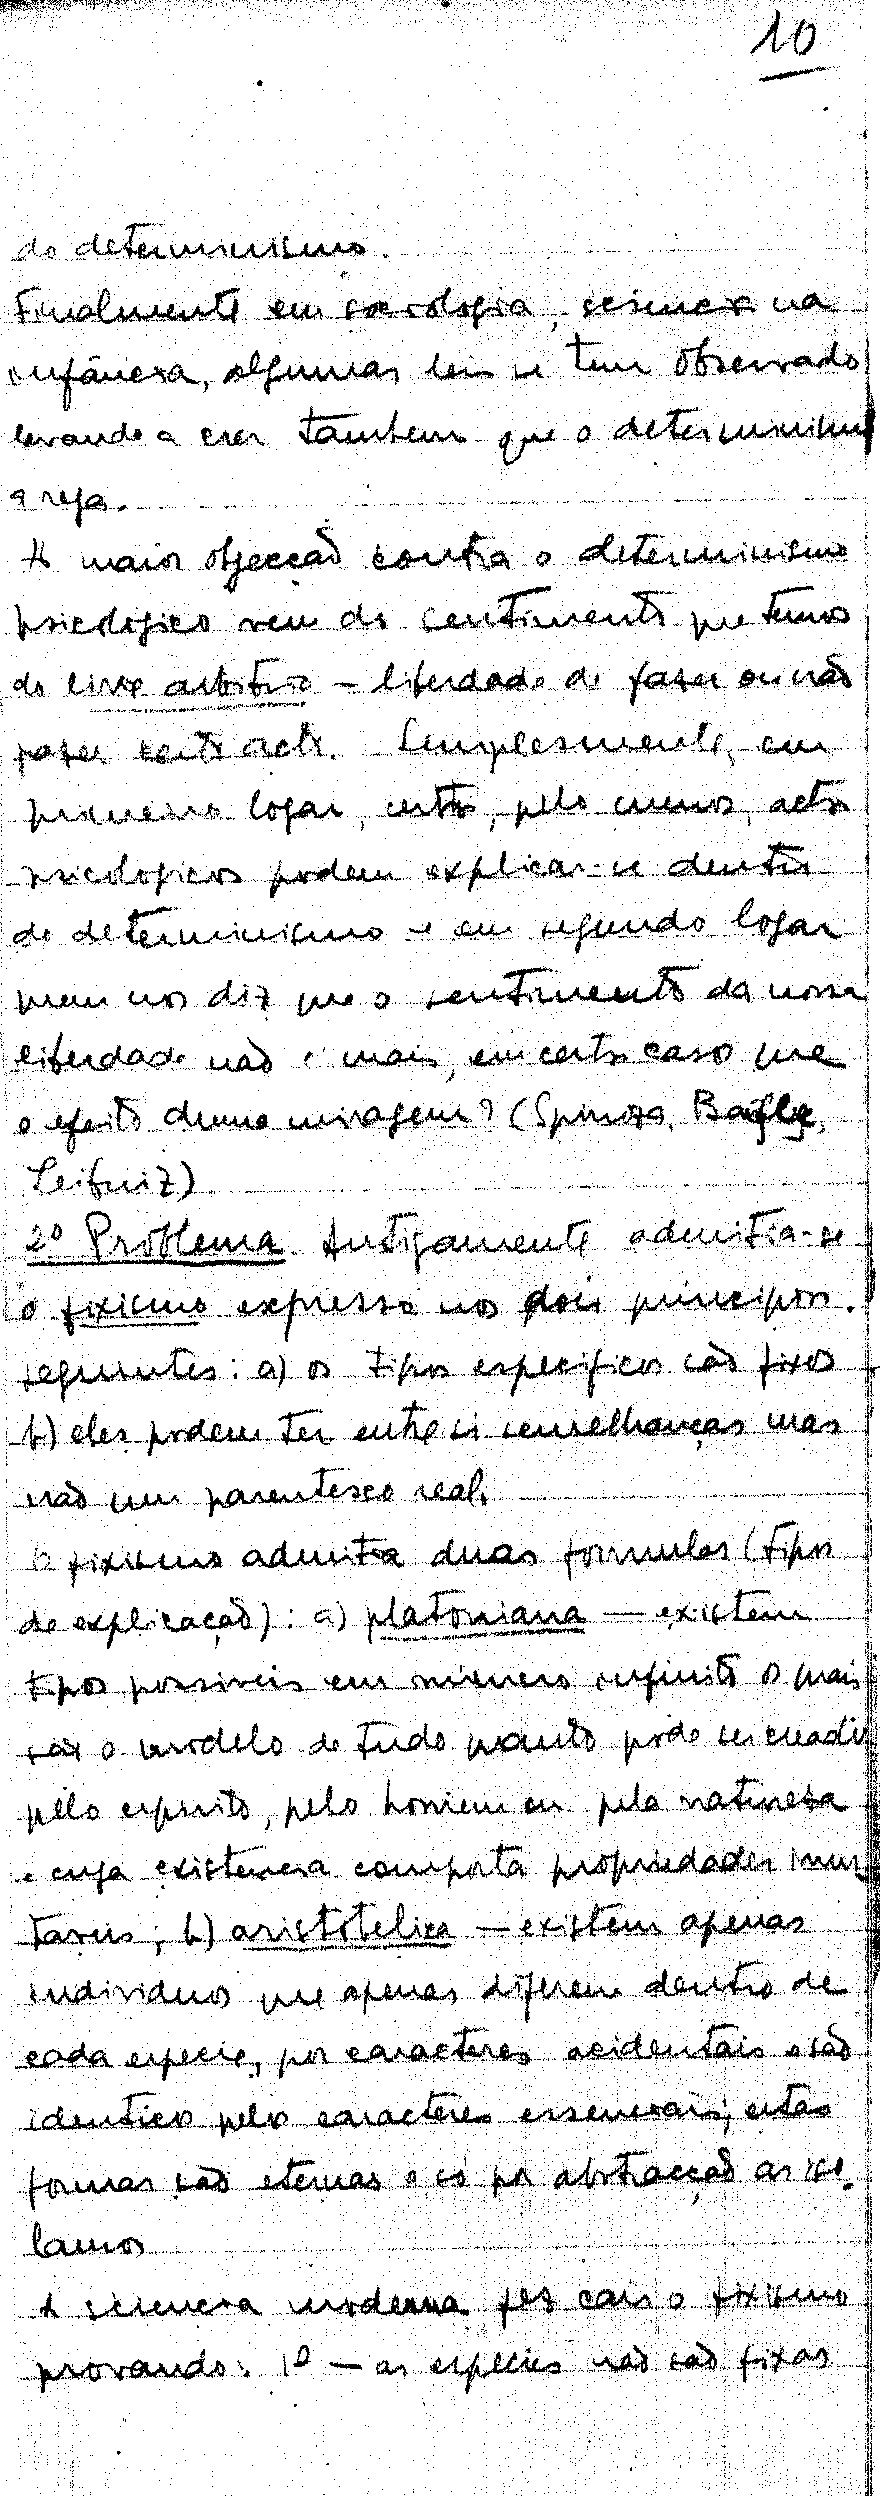 10
do determinismo.
Finalmente em sociologia, sciencia na
infância, algumas leis se tem observado
levando a crer tambem que o determinismo
a reja.
A maior objecção contra o determinismo
psicologico vem do sentimento que temos
do livre arbitrio – liberdade de fazer ou não
fazer certo acto. Simplesmente, em
primeiro logar, certos, pelo menos, actos
psicologicos podem explicar-se dentro
do determinismo e em segundo logar
quem nos diz que o sentimento da nossa
liberdade não é mais, em certo caso que
o efeito duma miragem? (Spinoza, Bayle,
Leibniz)
2º Problema. Antigamente admitia-se
o fixismo expresso nos dois principios
seguintes: a) os tipos especificos são fixos
b) eles podem ter entre si semelhanças mas
não um parentesco real.
O fixismo admitia duas formulas (tipos
de explicação): a) platoniana — existem
tipos possiveis em número infinito os quais
são o modelo de tudo quanto pode ser creado
pelo espirito, pelo homem ou pela natureza
e cuja existencia comporta propriedades imu-
taveis; b) aristotelica — existem apenas
individuos que apenas diferem dentro de
cada especie, por caracteres acidentais e são
identicos pelos caracteres essenciais; estas
formas são eternas e só por abstracção as iso-
lamos
A sciencia moderna fez cair o fixismo
provando: 1º — as espécies não são fixas